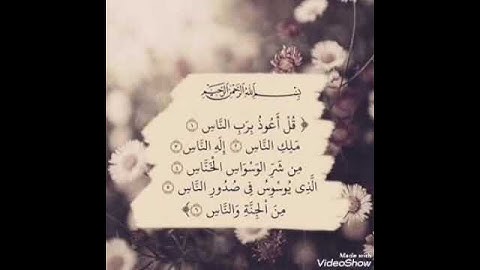 بِسْمِ اللَّهِ الرَّحْمَٰنِ الرَّحِيمِ
﴿ قُلْ أَعُوذُ بِرَبِّ النَّاسِ ١
مَلِكِ النَّاسِ ٢ إِلَٰهِ النَّاسِ ٣
مِن شَرِّ الْوَسْوَاسِ الْخَنَّاسِ ٤
الَّذِي يُوَسْوِسُ فِي صُدُورِ النَّاسِ ٥
مِنَ الْجِنَّةِ وَالنَّاسِ ٦ ﴾
Made with
VideoShow